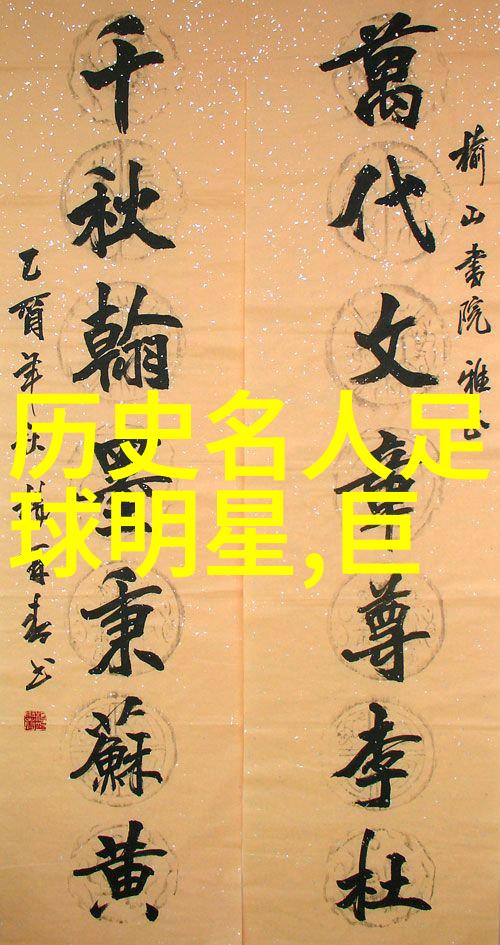 历史名人足
球明星,巨
榆山書院雅正
萬代文章尊李杜
千秋翰墨秉蘇黄
乙酉年秋春书